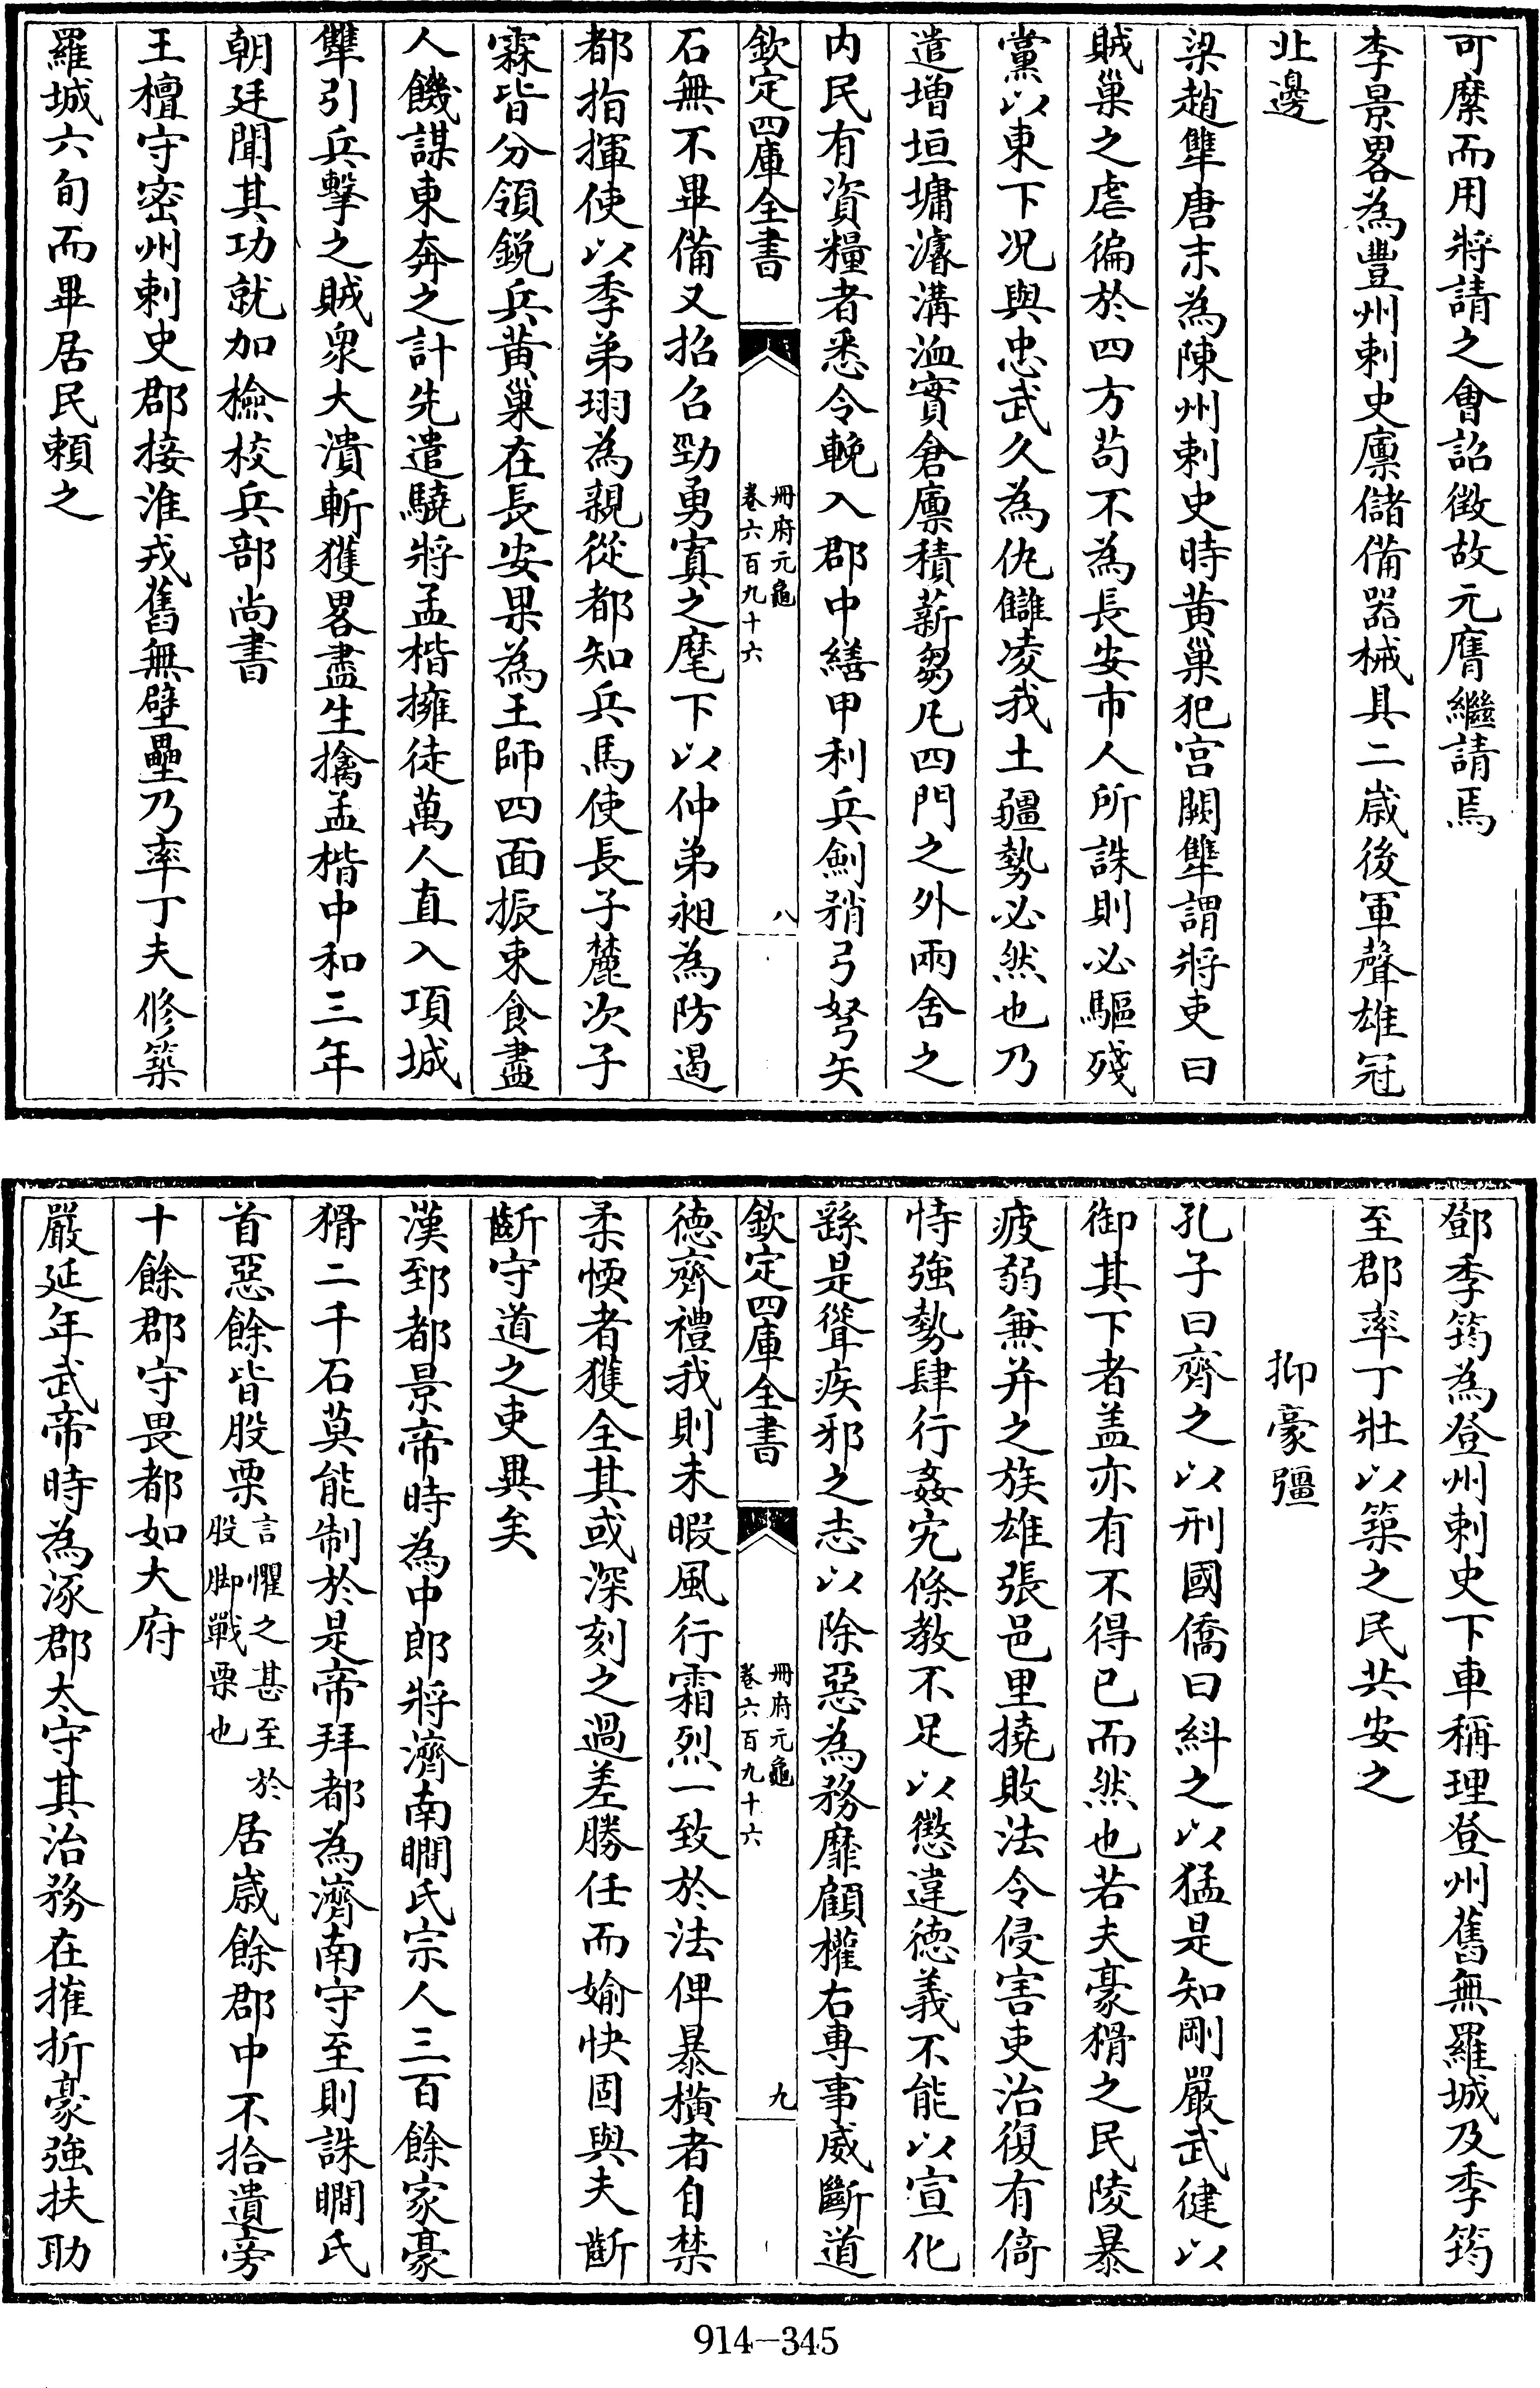 可縻而用將請之會詔徵故元膺繼請焉
李景畧為豐州刺史廩儲備器械具二歲後軍聲雄冠
北邊
梁趙犨唐末為陳州刺史時黄巢犯宫闕犨謂將吏曰
賊巢之虐徧於四方苟不為長安市人所誅則必驅殘
黨以東下况與忠武久為仇讎凌我土疆勢必然也乃
遣增垣墉濬溝洫實倉廪積薪芻凡四門之外兩舍之
内民有資糧者悉令輓入郡中繕甲利兵劍矟弓弩矢
欽定四庫全書
冊府元龜
卷六百九十六
八
石無不畢備又招召勁勇寘之麾下以仲弟昶為防遏
都指揮使以季弟珝為親從都知兵馬使長子麓次子
霖皆分領銳兵黄巢在長安果為王師四面振束食盡
人饑謀東奔之計先遣驍將孟楷擁徒萬人直入項城
犨引兵擊之賊衆大潰斬獲畧盡生擒孟楷中和三年
朝廷聞其功就加檢校兵部尚書
王檀守密州刺史郡接淮戎舊無壁壘乃率丁夫修築
羅城六旬而畢居民賴之
鄧季筠為登州刺史下車稱理登州舊無羅城及季筠
至郡率丁壯以築之民共安之
抑豪彊
孔子曰齊之以刑國僑曰糾之以猛是知剛嚴武健以
御其下者盖亦有不得已而然也若夫豪猾之民陵暴
疲弱兼并之族雄張邑里撓敗法令侵害吏治復有倚
恃強勢肆行姦宄條教不足以懲違德義不能以宣化
繇是聳疾邪之志以除惡為務靡顧權右専事威斷道
欽定四庫全書
冊府元龜
卷六百九十六
九
德齊禮我則未暇風行霜烈一致於法俾暴横者自禁
柔愞者獲全其或深刻之過差勝任而媮快固與夫齗
齗守道之吏異矣
漢郅都景帝時為中郎將濟南瞷氏宗人三百餘家豪
猾二千石莫能制於是帝拜都為濟南守至則誅瞷氏
首惡餘皆股栗言懼之甚至於股脚戰栗也居歲餘郡中不拾遺旁
十餘郡守畏都如大府
嚴延年武帝時為涿郡太守其治務在摧折豪強扶助
914-345